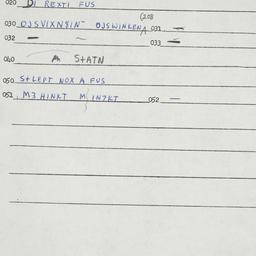 020 DI REXTI FUS
(208
030 OJSVIXN8IN- OJSWINKENA 031 —
032 — ~ 033 —
040 A S+ATN
050 S+LEPT NOX A FUS
051. M3 HINKT M IN7KT 052 —